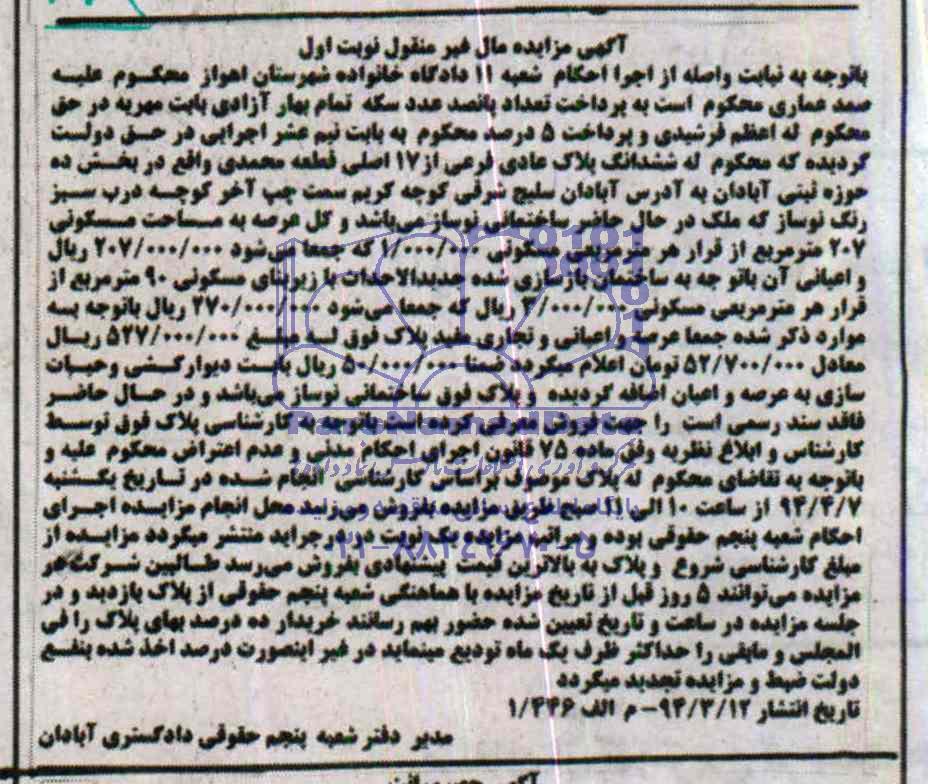 آگهی مزایده مال غیر منقول نوبت اول
باتوجه به نیابت واصله از اجرا احکام شعبه ۱۱ دادگاه خانواده شهرستان اهواز محکوم علیه
صمد عماری محکوم است به پرداخت تعداد پانصد عدد سکه تمام بهار آزادی بابت مهریه در حق
محکوم له اعظم فرشیدی و پرداخت ۵ درصد محکوم به بابت نیم عشر اجرایی در حق دولت
گردیده که محکوم له ششدانگ پلاک عادی فرعی از۱۷ اصلی قطعه محمدی واقع در بخش ده
حوزه ثبتی آبادان به آدرس آبادان سلیج شرقی کوچه کریم سمت چپ آخر کوچه درب سبز
رنگ نوساز که ملک در حال حاضر ساختمانی نوساز می‌باشد و کل عرصه به مساحت مسکونی
۲۰۷ مترمربع از قرار هر مترمربعی مسکونی ۱/۰۰۰/۰۰۰ که جمعا می‌شود ۲۰۷/۰۰۰/۰۰۰ ریال
و اعیانی آن باتو جه به ساختمان بازسازی شده جدیدالاحداث با زیربنای مسکونی ۹۰ مترمربع از
قرار هر مترمربعی مسکونی ۳/۰۰۰/۰۰۰ ریال که جمعا می‌شود ۲۷۰/۰۰۰/۰۰۰ ریال باتوجه به
موارد ذکر شده جمعا عرصه و اعیانی و تجاری مفید پلاک فوق مبلغ ۵۲۷/۰۰۰/۰۰۰ ریال
معادل ۵۲/۷۰۰/۰۰۰ تومان اعلام میگردد ضمنا ۵۰/۰۰۰/۰۰۰ ریال بابت دیوارکشی وحیات
سازی به عرصه و اعیان اضافه گردیده و پلاک فوق ساختمانی نوساز می‌باشد و در حال حاضر
فاقد سند رسمی است را جهت فروش معرفی کرده است باتوجه به کارشناسی پلاک فوق توسط
کارشناس و ابلاغ نظریه وفق ماده ۷۵ قانون اجرای احکام مدنی و عدم اعتراض محکوم علیه و
باتوجه به تقاضای محکوم له پلاک موصوف براساس کارشناسی انجام شده در تاریخ یکشنبه
۹۴/۴/۷ از ساعت ۱۰ الی ۱۱ صبح طریق مزایده بفروش می‌رسد محل انجام مزایده اجرای
احکام شعبه پنجم حقوقی بوده و مراتب مزایده یک نوبت در جراید منتشر میگردد مزایده از
مبلغ کارشناسی شروع و پلاک به بالاترین قیمت پیشنهادی بفروش می‌رسد طالبین شرکت در
مزایده می‌توانند ۵ روز قبل از تاریخ مزایده با هماهنگی شعبه پنجم حقوقی از پلاک بازدید و در
جلسه مزایده در ساعت و تاریخ تعیین شده حضور بهم رسانند خریدار ده درصد بهای پلاک را فی
المجلس و مابقی را حداکثر ظرف یک ماه تودیع مینماید در غیر اینصورت درصد اخذ شده بنفع
دولت ضبط و مزایده تجدید میگردد
تاریخ انتشار ۹۴/۳/۱۲- م الف ۱/۴۴۶
مدیر دفتر شعبه پنجم حقوقی دادگستری آبادان